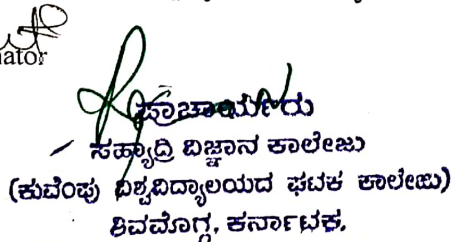 nator
ಪ್ರಾಚಾರ್ಯರು
ಸಹ್ಯಾದ್ರಿ ವಿಜ್ಞಾನ ಕಾಲೇಜು
(ಕುವೆಂಪು ವಿಶ್ವವಿದ್ಯಾಲಯದ ಘಟಕ ಕಾಲೇಜು)
ಶಿವಮೊಗ್ಗ, ಕರ್ನಾಟಕ,